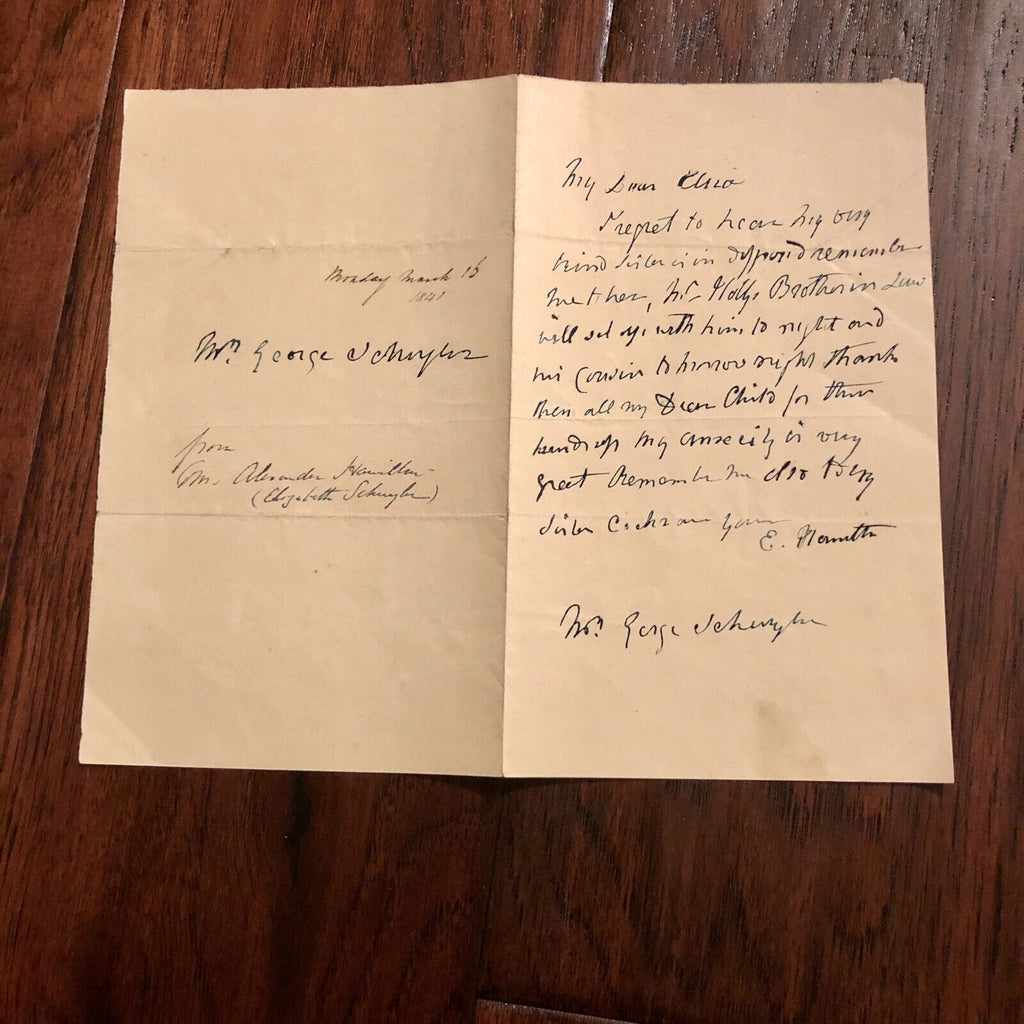 Monday March 15
1841
Mrs. George Schuyler
from
Mrs. Alexander Hamilton
(Elizabeth Schuyler)
My Dear Eliza
I regret to hear my very
kind Sister is in disposed remember
me t her, Mr Brother in Law
will set up with him to night and
his Cousin to morrow night thank
them all my Dear Child for their
my anxiety is very
great Remember me also to my
Sister Cochran your
E. Hamilton
Mrs. George Schuyler